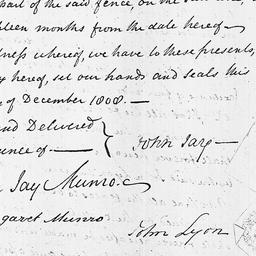 part of the said fence, on the
teen months from the date hereof —
ness whereof, we have to these presents,
y hereof, set our hands and seals this
of December 1808. —
and Delivered
ence of —
John Jay —
Jay Munro
garet Munro
John Lyon